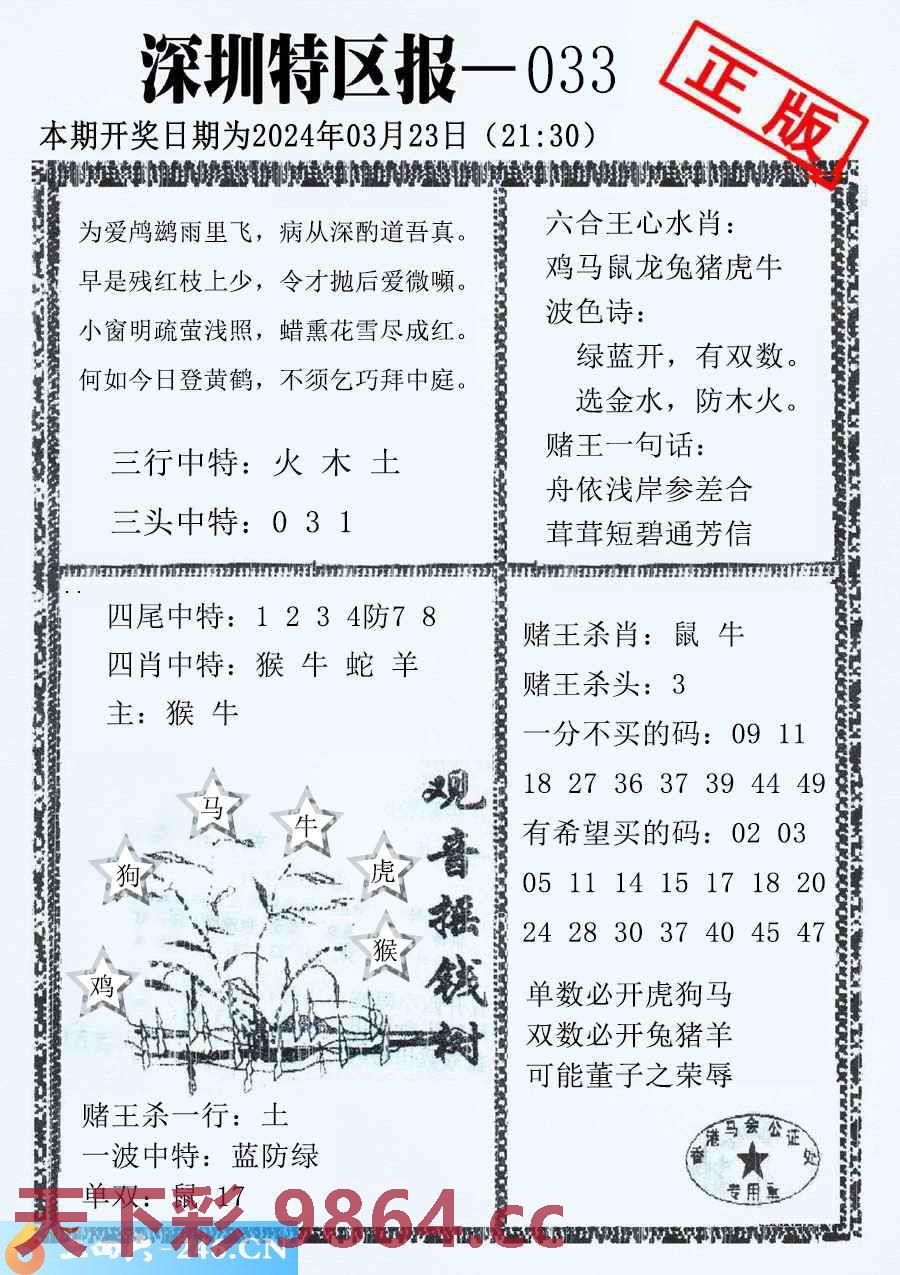 深圳特区报—033
正版
本期开奖日期为2024年03月23日（21:30）
为爱鸬鹚雨里飞，病从深酌道吾真。
早是残红枝上少，令才抛后爱微嚬。
小窗明疏萤浅照，蜡熏花雪尽成红。
何如今日登黄鹤，不须乞巧拜中庭。
三行中特：火 木 土
三头中特：0 3 1
六合王心水肖：
鸡马鼠龙兔猪虎牛
波色诗：
绿蓝开，有双数。
选金水，防木火。
赌王一句话：
舟依浅岸参差合
茸茸短碧通芳信
四尾中特：1 2 3 4防7 8
四肖中特：猴 牛 蛇 羊
主：猴 牛
马
牛
狗
虎
猴
鸡
观音摇钱树
赌王杀一行：土
一波中特：蓝防绿
单双：鼠 17
赌王杀肖：鼠 牛
赌王杀头：3
一分不买的码：09 11
18 27 36 37 39 44 49
有希望买的码：02 03
05 11 14 15 17 18 20
24 28 30 37 40 45 47
单数必开虎狗马
双数必开兔猪羊
可能董子之荣辱
香港马会公证处
专用章
天下彩 9864.cc